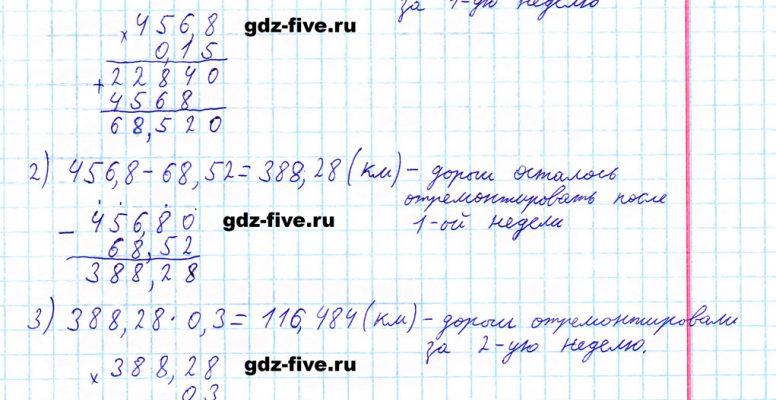 за 1-ую неделю
× 456,8
0,15
+ 22840
4568
68,520
gdz-five.ru
2) 456,8 - 68,52 = 388,28 (км) - дороги осталось
отремонтировать после
1-ой недели
- 456,80
68,52
388,28
gdz-five.ru
3) 388,28 · 0,3 = 116,484 (км) - дороги отремонтировали
за 2-ую неделю.
× 388,28
0,3
gdz-five.ru